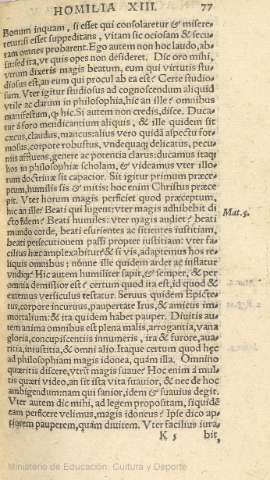 HOMILIA XIII. 77
Bonum inquam, si esset qui consolaretur & misere-
retur: si esset suppeditans, vitam sic ociosam & secu-
ram omnes probarent. Ego autem non hoc laudo, ab-
sit: sed ita, vt quis opes non desideret. Dic oro mihi,
vtrum dixeris magis beatum, eum qui virtutis stu-
diosus est, an eum qui procul ab ea est? Certe studio-
sum. Vter igitur studiosus ad cognoscendum aliquid
vtile ac clarum in philosophia, hic an ille? omnibus
manifestum, q̃ hic. Si autem non credis, disce. Duca-
tur è foro mendicantium aliquis, & ille quidem sit
cæcus, claudus, mancus: alius vero quidã aspectu for-
mosus, corpore robustus, vndequaq; delicatus, pecu-
niis affluens, genere ac potentia clarus: ducamus itaq;
hos in philosophiæ scholam, & videamus vter illo-
rum doctrinæ sit capacior. Sit igitur primum præce-
ptum, humilis sis & mitis: hoc enim Christus præce-
pit. Vter horum magis perficiet quod præceptum,
hic an ille? Beati qui lugent: vter magis adhibebit di-
cto fidem? Beati humiles: vter magis audiet? beati
mundo corde, beati esurientes ac sitientes iustitiam,
beati persecutionem passi propter iustitiam: vter fa-
cilius hæc amplexabitur? & si vis, adaptemus hos re-
liquis omnibus: nonne ille quidem ardet ac inflatur
vndiq;? Hic autem humiliter sapit, & semper, & per
omnia demissior est? certum quod ita est, id quod &
externus versiculus testatur. Seruus quidem Epicte-
tus, corpore incuruus, paupertate Irus, & amicus im-
mortalium: & ita quidem habet pauper. Diuitis au-
tem anima omnibus est plena malis, arrogantia, vana
gloria, concupiscentiis innumeris, ira & furore, aua-
ritia, iniustitia, & omni alio. Itaque certum quod hęc
ad philosophiam magis idonea, quàm illa. Omnino
quæritis discere, vtrũ magis suaue? Hoc enim à mul-
tis quæri video, an sit ista vita suauior, & nec de hoc
ambigendum: nam qui sanior, idem & suauius degit.
Vter autem dic mihi, ad legem propositam, siquidē
eam perficere velimus, magis idoneus? Ipse dico ap-
sissimum pauperem, quàm diuitem. Vter facilius iura-
K 5 bit,
Mat. 5.
Ministerio de Educación, Cultura y Deporte